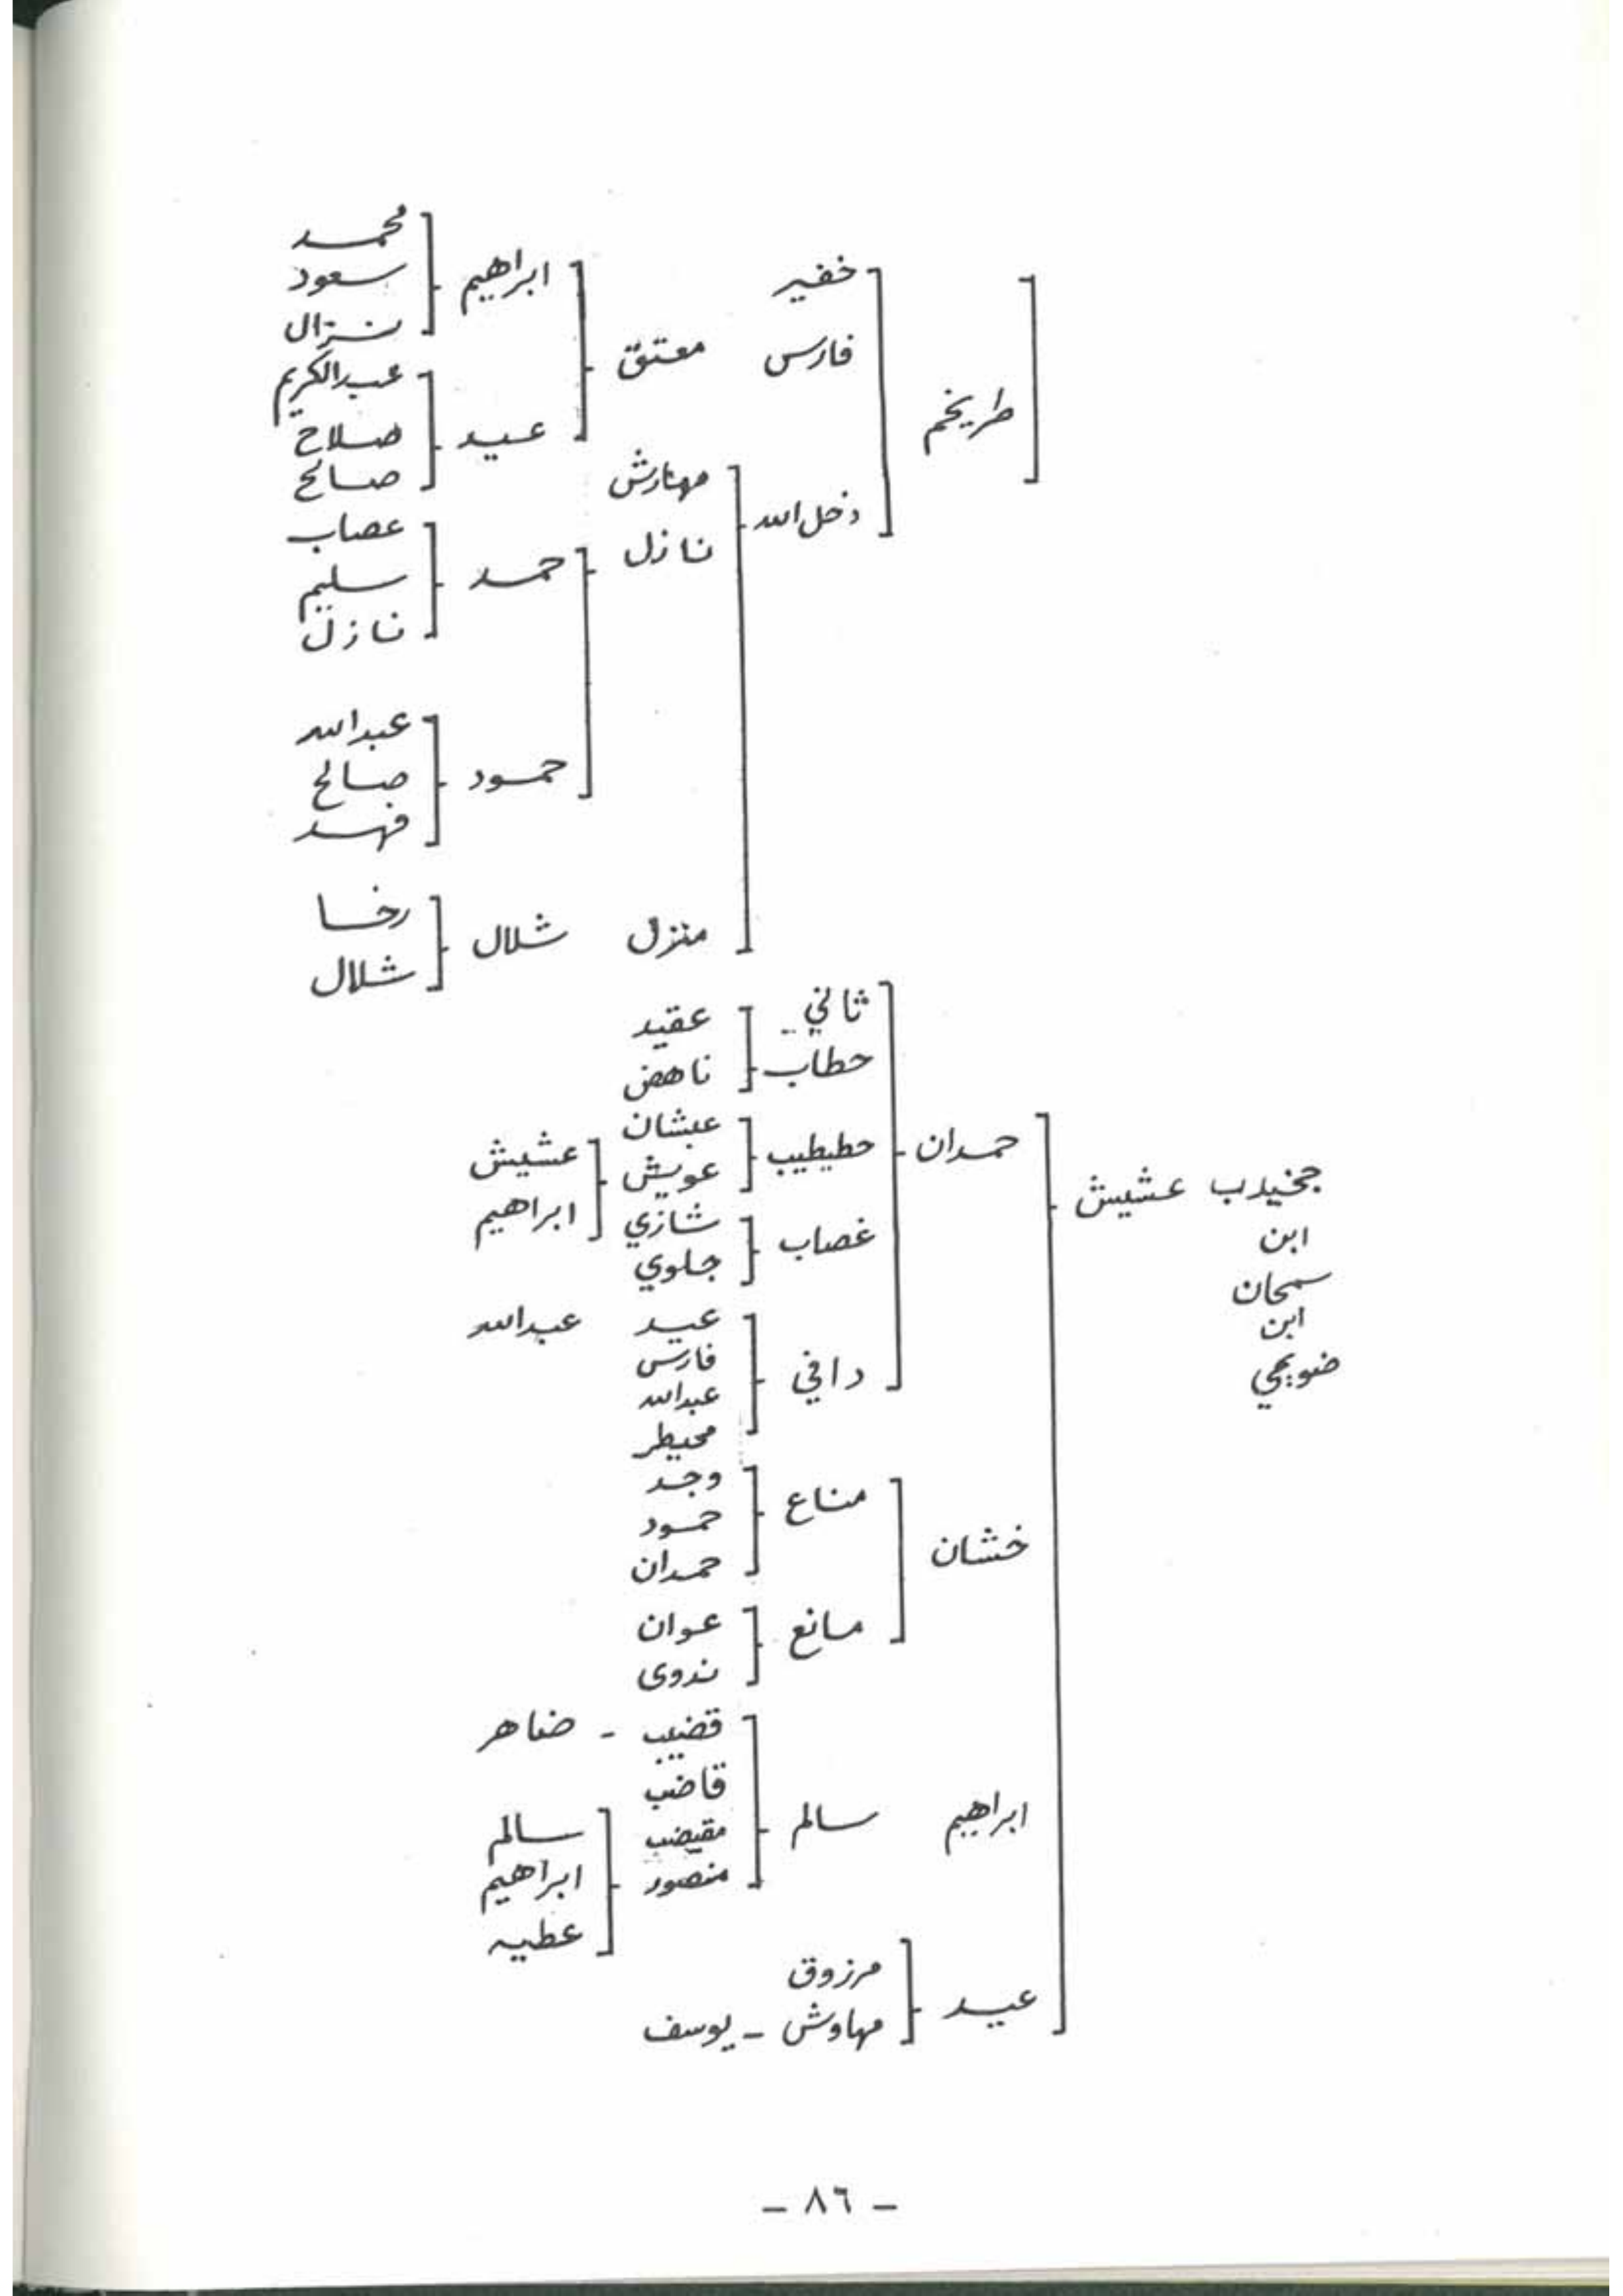 طريخم
خفير
فارس
معتق
ابراهيم
محمد
سعود
نزال
عيد
عبدالكريم
صلاح
صالح
دخل الله
مهارش
نازل
حمد
عصاب
سليم
نازل
حمود
عبدالله
صالح
فهد
منزل
شلال
رخا
شلال
جخيدب
ابن
سمحان
ابن
ضويحي
عشيش
حمدان
ثاني
حطاب
عقيد
ناهض
حطيطيب
عبشان
عويش
عشيش
ابراهيم
غصاب
شازي
جلوي
دافي
عيد
عبدالله
فارس
عبدالله
محيطر
خشان
مناع
وجد
حمود
حمدان
مانع
عوان
ندوى
ابراهيم
سالم
قضيب - ضاهر
قاضب
مقيضب
منصور
سالم
ابراهيم
عطيه
عيد
مرزوق
مهاوش - يوسف
- ٨٦ -